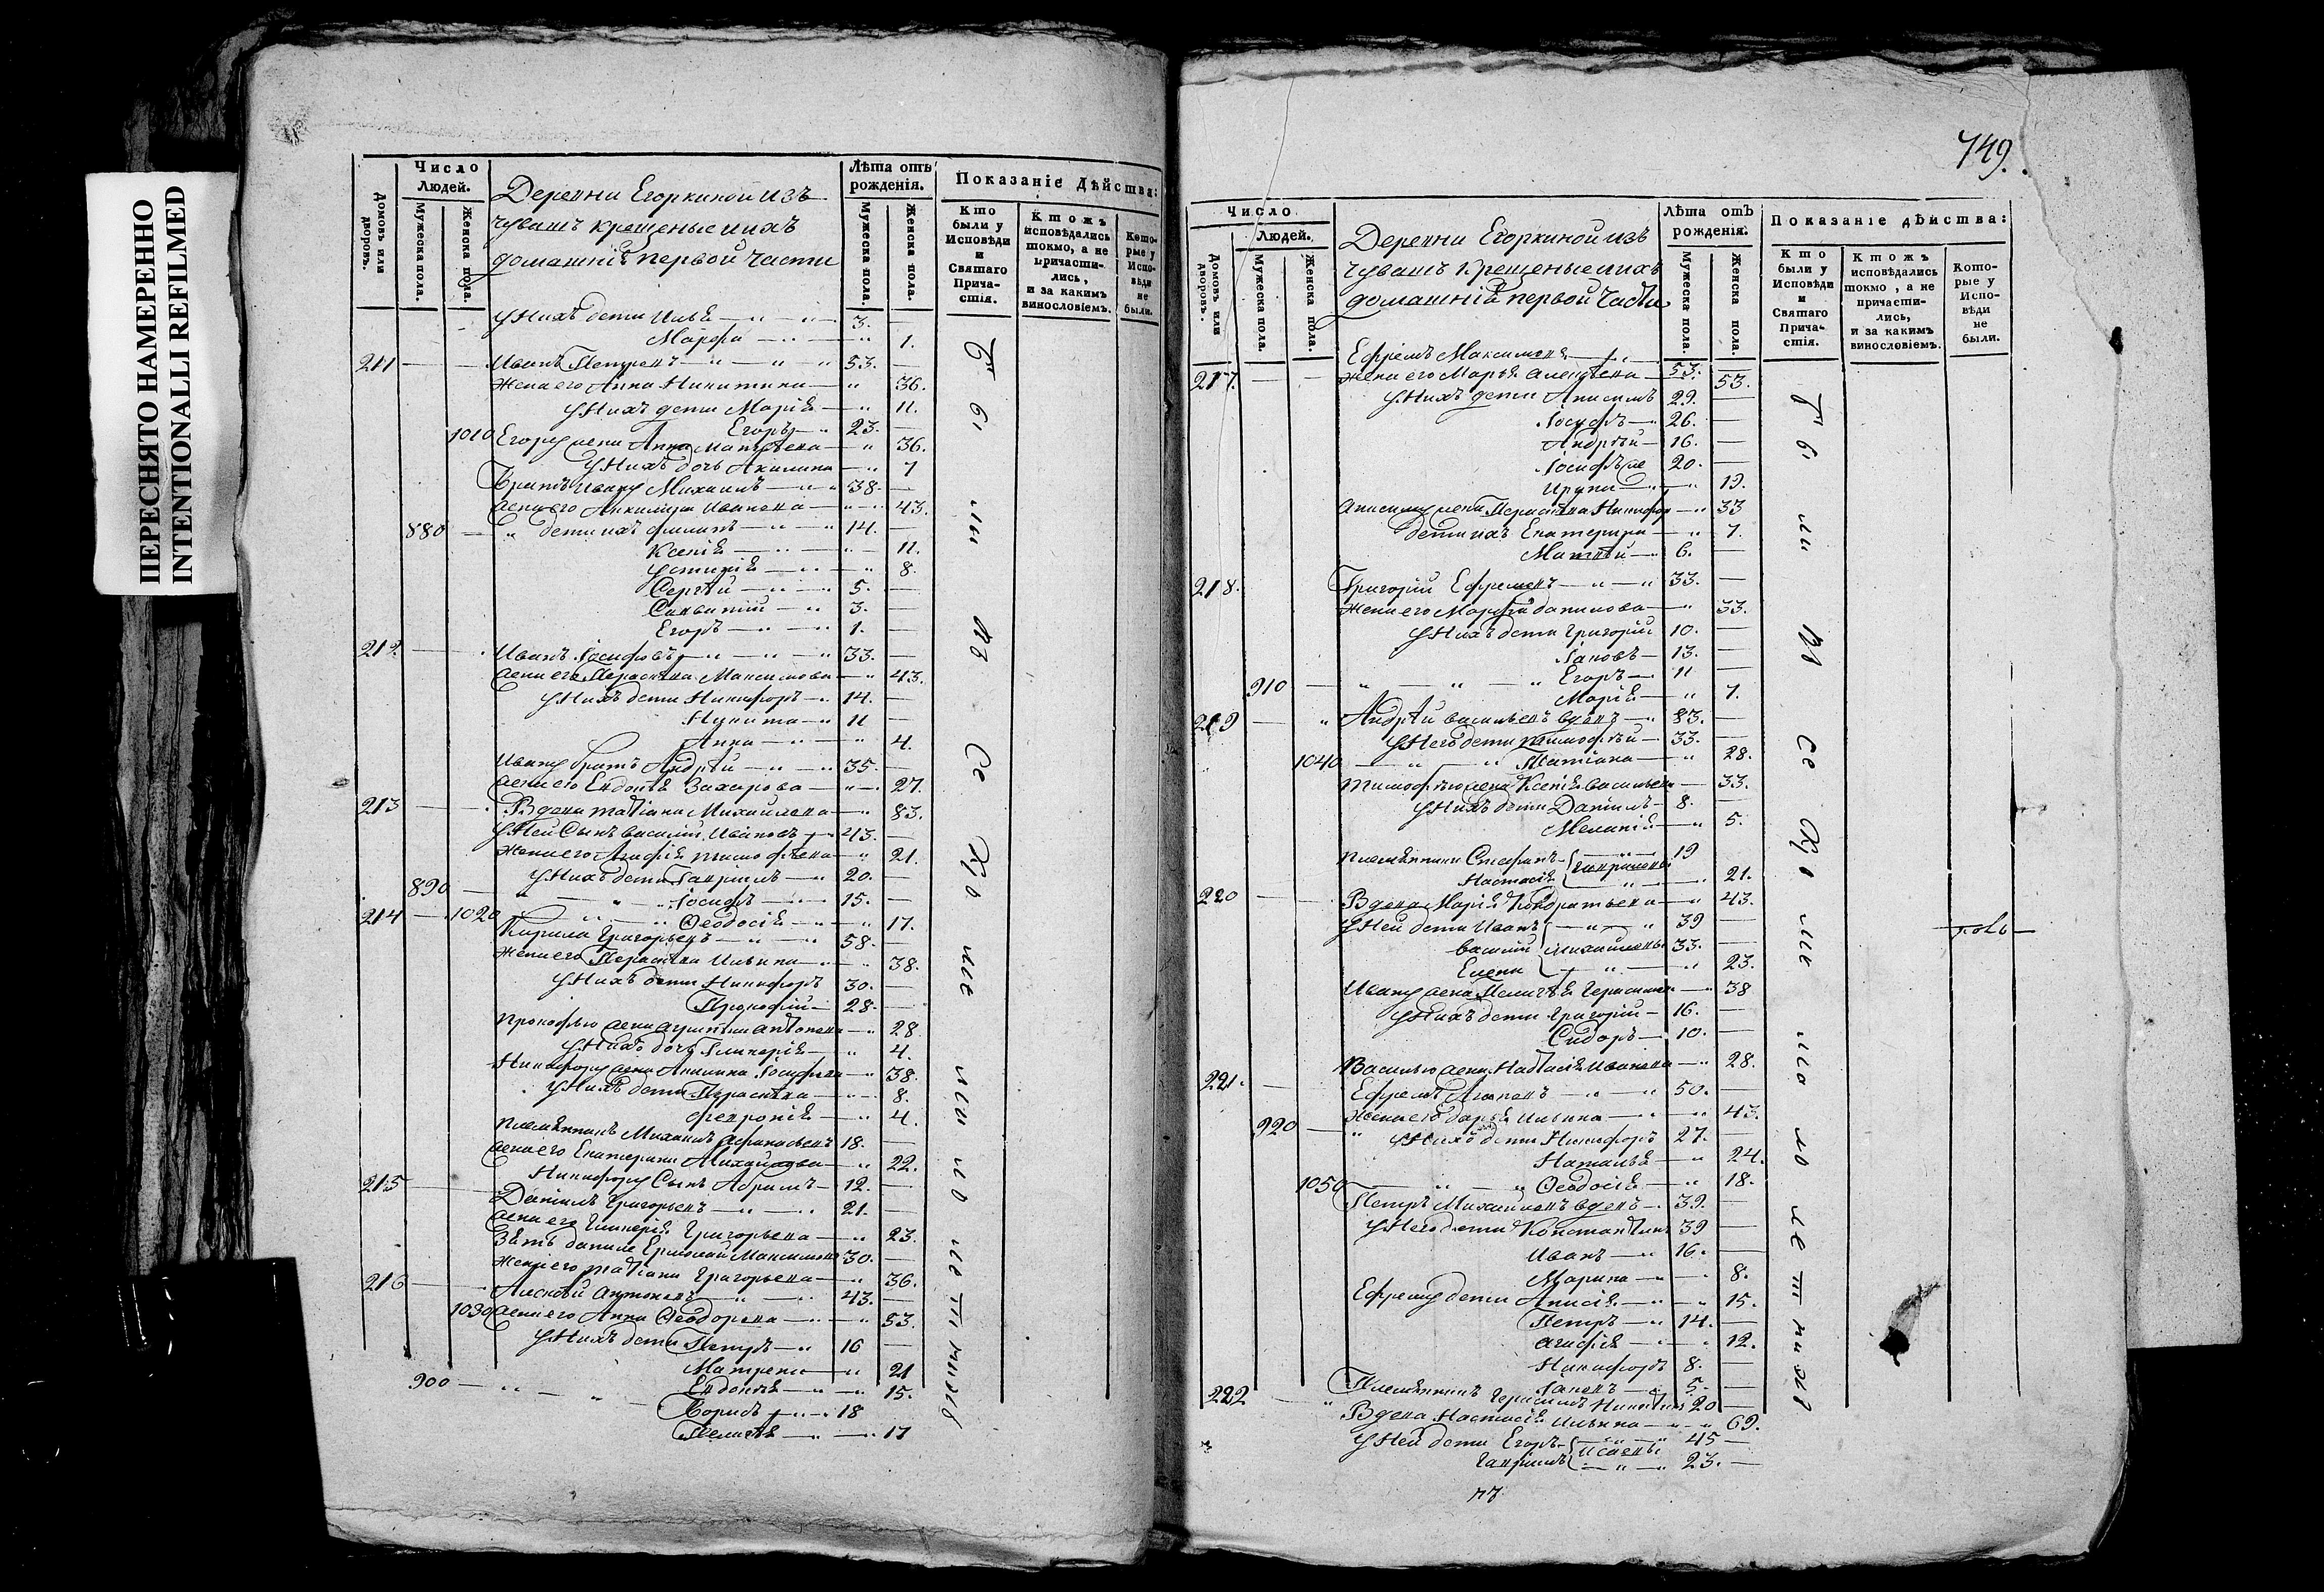 ПЕРЕСНЯТО НАМЕРЕННО
INTENTIONALLI REFILMED
Число
Людей.
Домовъ или дворовъ.
Мужеска пола.
Женска пола.
Деревни Егоркиной изъ
чувашъ крещеные и ихъ
домашнiя первой части
Лѣта отъ
рожденiя.
Мужеска пола.
Женска пола.
Показанiе дѣйства:
Кто
были у
Исповѣди
и
Святаго
Прича-
стiя.
Ктожъ
исповѣдались
токмо, а не
причасти-
лись,
и за какимъ
винословiемъ.
Кото-
рые у
Испо-
вѣди
не
были.
У нихъ дети Илья 3.
Марфа 1.
211 Иванъ Петровъ 53.
Жена его Анна Никитина 36.
У нихъ дети Марiя 11.
Егоръ 23.
1010 Егору жена Анна Матвѣева 36.
У нихъ дочь Акилина 7
Братъ Ивану Михаилъ 38.
жена его Акилина Иванова 43.
880 дети ихъ Филипъ 14.
Ксенiя 11.
Устинiя 8.
Сергѣй 5.
3.
Егоръ 1.
212 Иванъ Iосифовъ 33.
жена его Парасковья Максимова 43.
У нихъ дети Никифоръ 14.
Никита 11
Анна 4.
Ивану братъ Андрѣй 35.
жена его Евдокiя Захарова 27.
213 Вдова Татiана Михайлова 83.
У ней сынъ Василiй Ивановъ 43.
Жена его Агафiя Тимофѣева 21.
У нихъ дети Гаврiилъ 20.
890 Iосифъ 15.
1020 Ѳеодосiя 17.
214 Кирила Григорьевъ 58.
Жена его Ильина 38.
У нихъ дети Никифоръ 30.
Прокофiй 28.
Прокофью жена Антонова 28
У нихъ дочь Гликерiя 4.
Никифору жена Акилина Iосифова 38.
У нихъ дети 8.
Февронiя 4.
Племянникъ Михаилъ Афанасьевъ 18.
жена его Екатерина Михайлова 22.
Никифору сынъ Абрамъ 12.
215 Данiилъ Григорьевъ 21.
жена его Гликерiя Григорьева 23.
Зять Данилы Ермолай Максимовъ 30.
Жена его Татiана Григорьева 36.
216 Алексѣй Антоновъ 43.
1030 жена его Анна Ѳеодорова 53.
У нихъ дети Петръ 16
Матрена 21
900 Евдокiя 15.
Борисъ 18
Пелагѣя 17
749.
Число
Людей.
Домовъ или дворовъ.
Мужеска пола.
Женска пола.
Деревни Егоркиной изъ
чувашъ крещеные и ихъ
домашнiя первой части
Лѣта отъ
рожденiя.
Мужеска пола.
Женска пола.
Показанiе дѣйства:
Кто
были у
Исповѣди
и
Святаго
Прича-
стiя.
Ктожъ
исповѣдались
токмо, а не
причасти-
лись,
и за какимъ
винословiемъ.
Кото-
рые у
Испо-
вѣди
не
были.
217. Ефремъ Максимовъ 53.
Жена его Марья 53.
У нихъ дети Анисимъ 29.
Iосифъ 26.
Андрѣй 16.
Iосифъ же 20.
Ирина 19.
Анисиму жена Парасковья Никифор 33
дети ихъ Екатерина 7.
Матвѣй 6.
218. Григорiй Ефремовъ 33.
Жена его Марфа Данилова 33.
У нихъ дети Григорiй 10.
Iаковъ 13.
910 Егоръ 11
Марiя 7.
219 Андрѣй Васильевъ вдовъ 83.
У него дети Тимофѣй 33.
1040 Татiана 28.
Тимофѣю жена Ксенiя Васильева 33.
У нихъ дети Данiилъ 8.
Меланiя 5.
Племянники Стефанъ 19
Настасiя Гавриловы 21.
220 Вдова Марiя Кондратьева 43.
У ней дети Иванъ 39
Василiй Михайловы 33.
Елена 23.
Ивану жена Пелагѣя Герасимова 38
У нихъ дети Григорiй 16.
Сидоръ 10.
Василью жена Настасiя Иванова 28.
221. Ефремъ 50.
Жена его Дарья Ильина 43.
920 У нихъ дети Никифоръ 27.
Наталья 24.
1050 Ѳеодосiя 18.
Петръ Михайловъ вдовъ 39.
У него дети Константинъ 39
Иванъ 16.
Марина 8.
Ефрему дети Анисiя 15.
Петръ 14.
Агафiя 12.
Никифоръ 8.
Iаковъ 5.
Племянникъ Герасимъ Никитинъ 20
222 Вдова Настасiя Ильина 69.
У ней дети Егоръ 45
Гаврiилъ Исаевы 23.